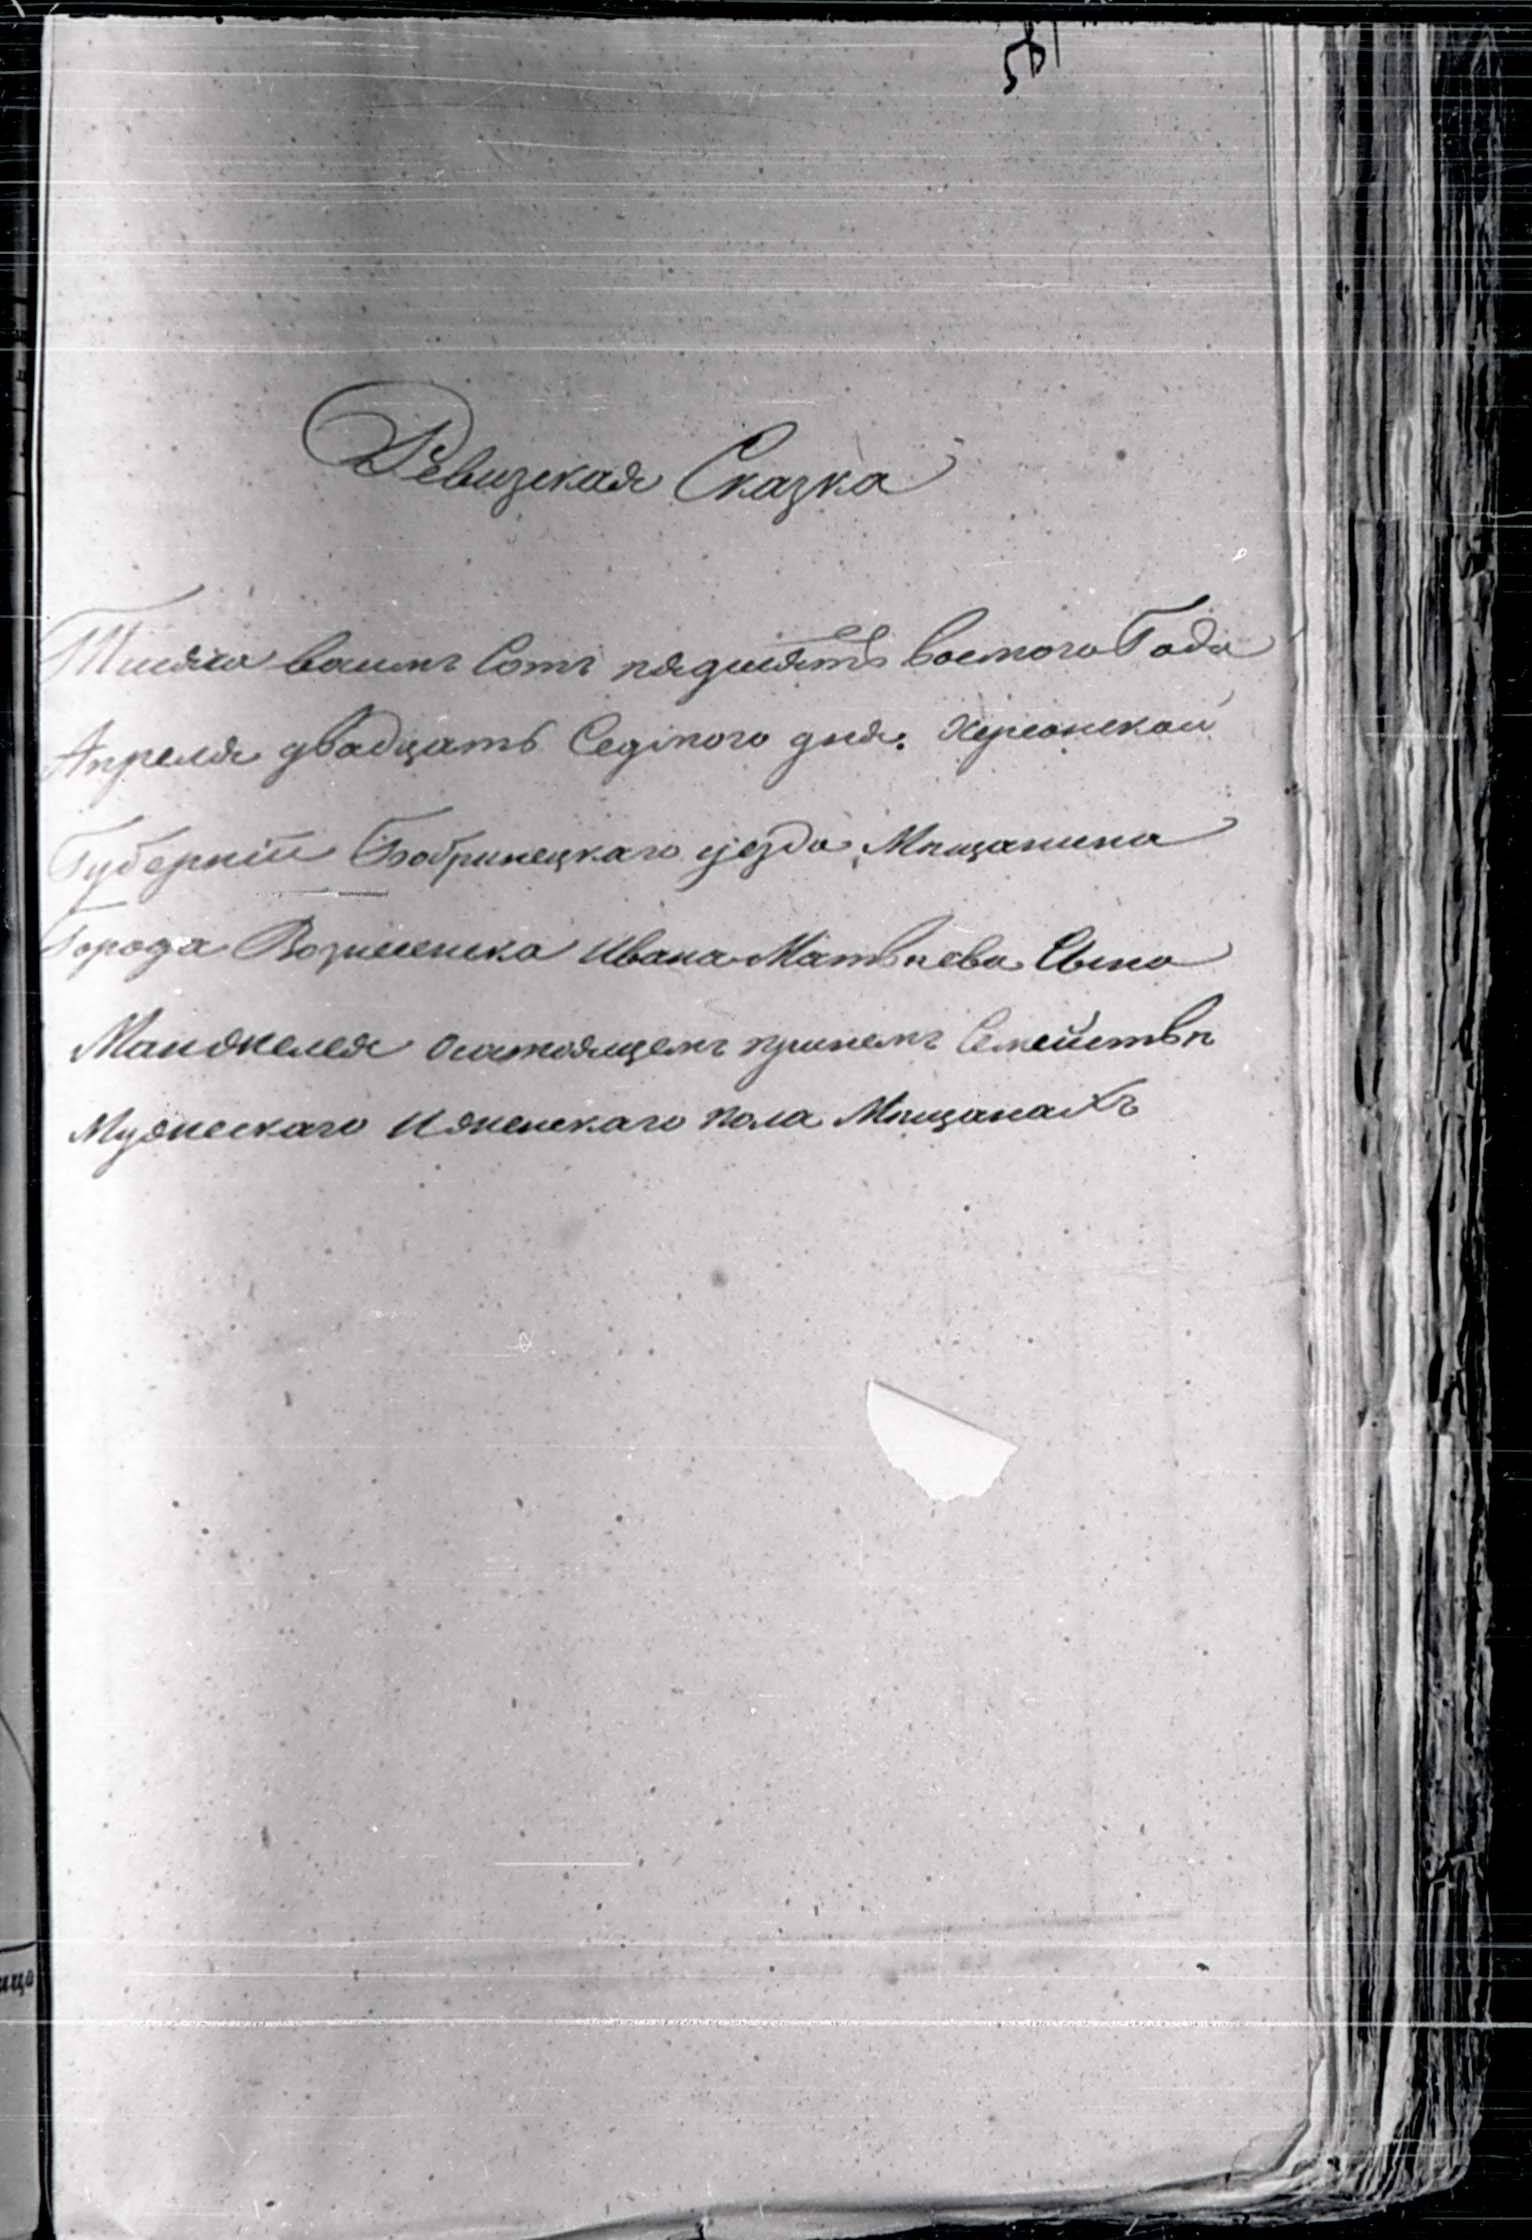 Ревизская Сказка
Тисяча восимъ Сотъ пядисятъ восмого Года
Апреля двадцать Седмого дня. Херсонской
Губерніи Бобринецкаго уезда Мещанина
Города Вознесенска Ивана Матвеева Сына
Манжелея осостоящемъ принемъ Семействе
Мужескаго Иженскаго пола Мещанахъ